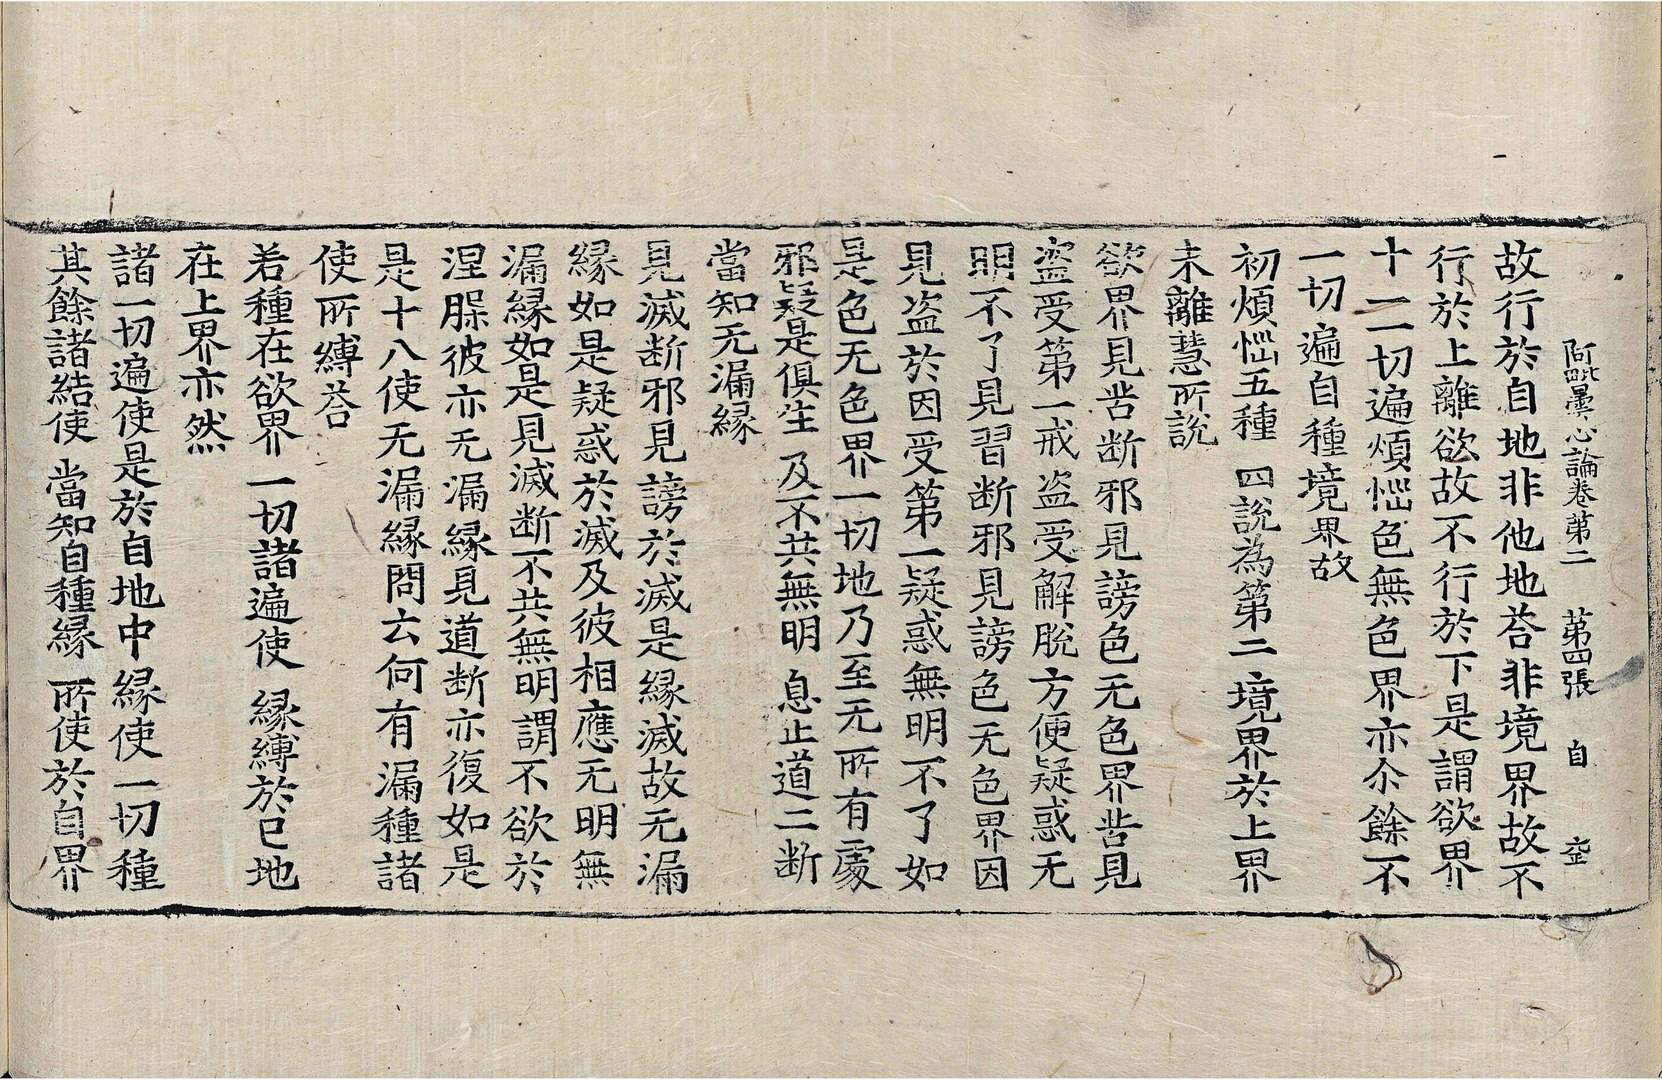 阿毗曇心論卷第二 第四張 自 空
故行於自地非他地荅非非境界故不
行於上離欲故不行於下是謂欲界
十一一切遍煩惱色無色界亦尒餘不
一切遍自種境界故
初煩惱五種 四說為第二 境界於上界
未離慧所說
欲界見苦断邪見謗色无色界苦見
盜受第一戒盜受解脫方便疑惑无
明不了見習断邪見謗色无色界因
見盜於因受第一疑惑無明不了如
是色无色界一切地乃至无所有處
邪疑是俱生 及不共無明 息止道二断
當知无漏縁
見滅断邪見謗於滅是縁滅故无漏
縁如是疑惑於滅及彼相應无明無
漏縁如是見滅断不共無明謂不欲於
涅槃彼亦无漏縁見道断亦復如是
是十八使无漏縁問云何有漏種諸
使所縛荅
若種在欲界 一切諸遍使 縁縛於已地
在上界亦然
諸一切遍使是於自地中縁使一切種
其餘諸結使 當知自種縁 所使於自界